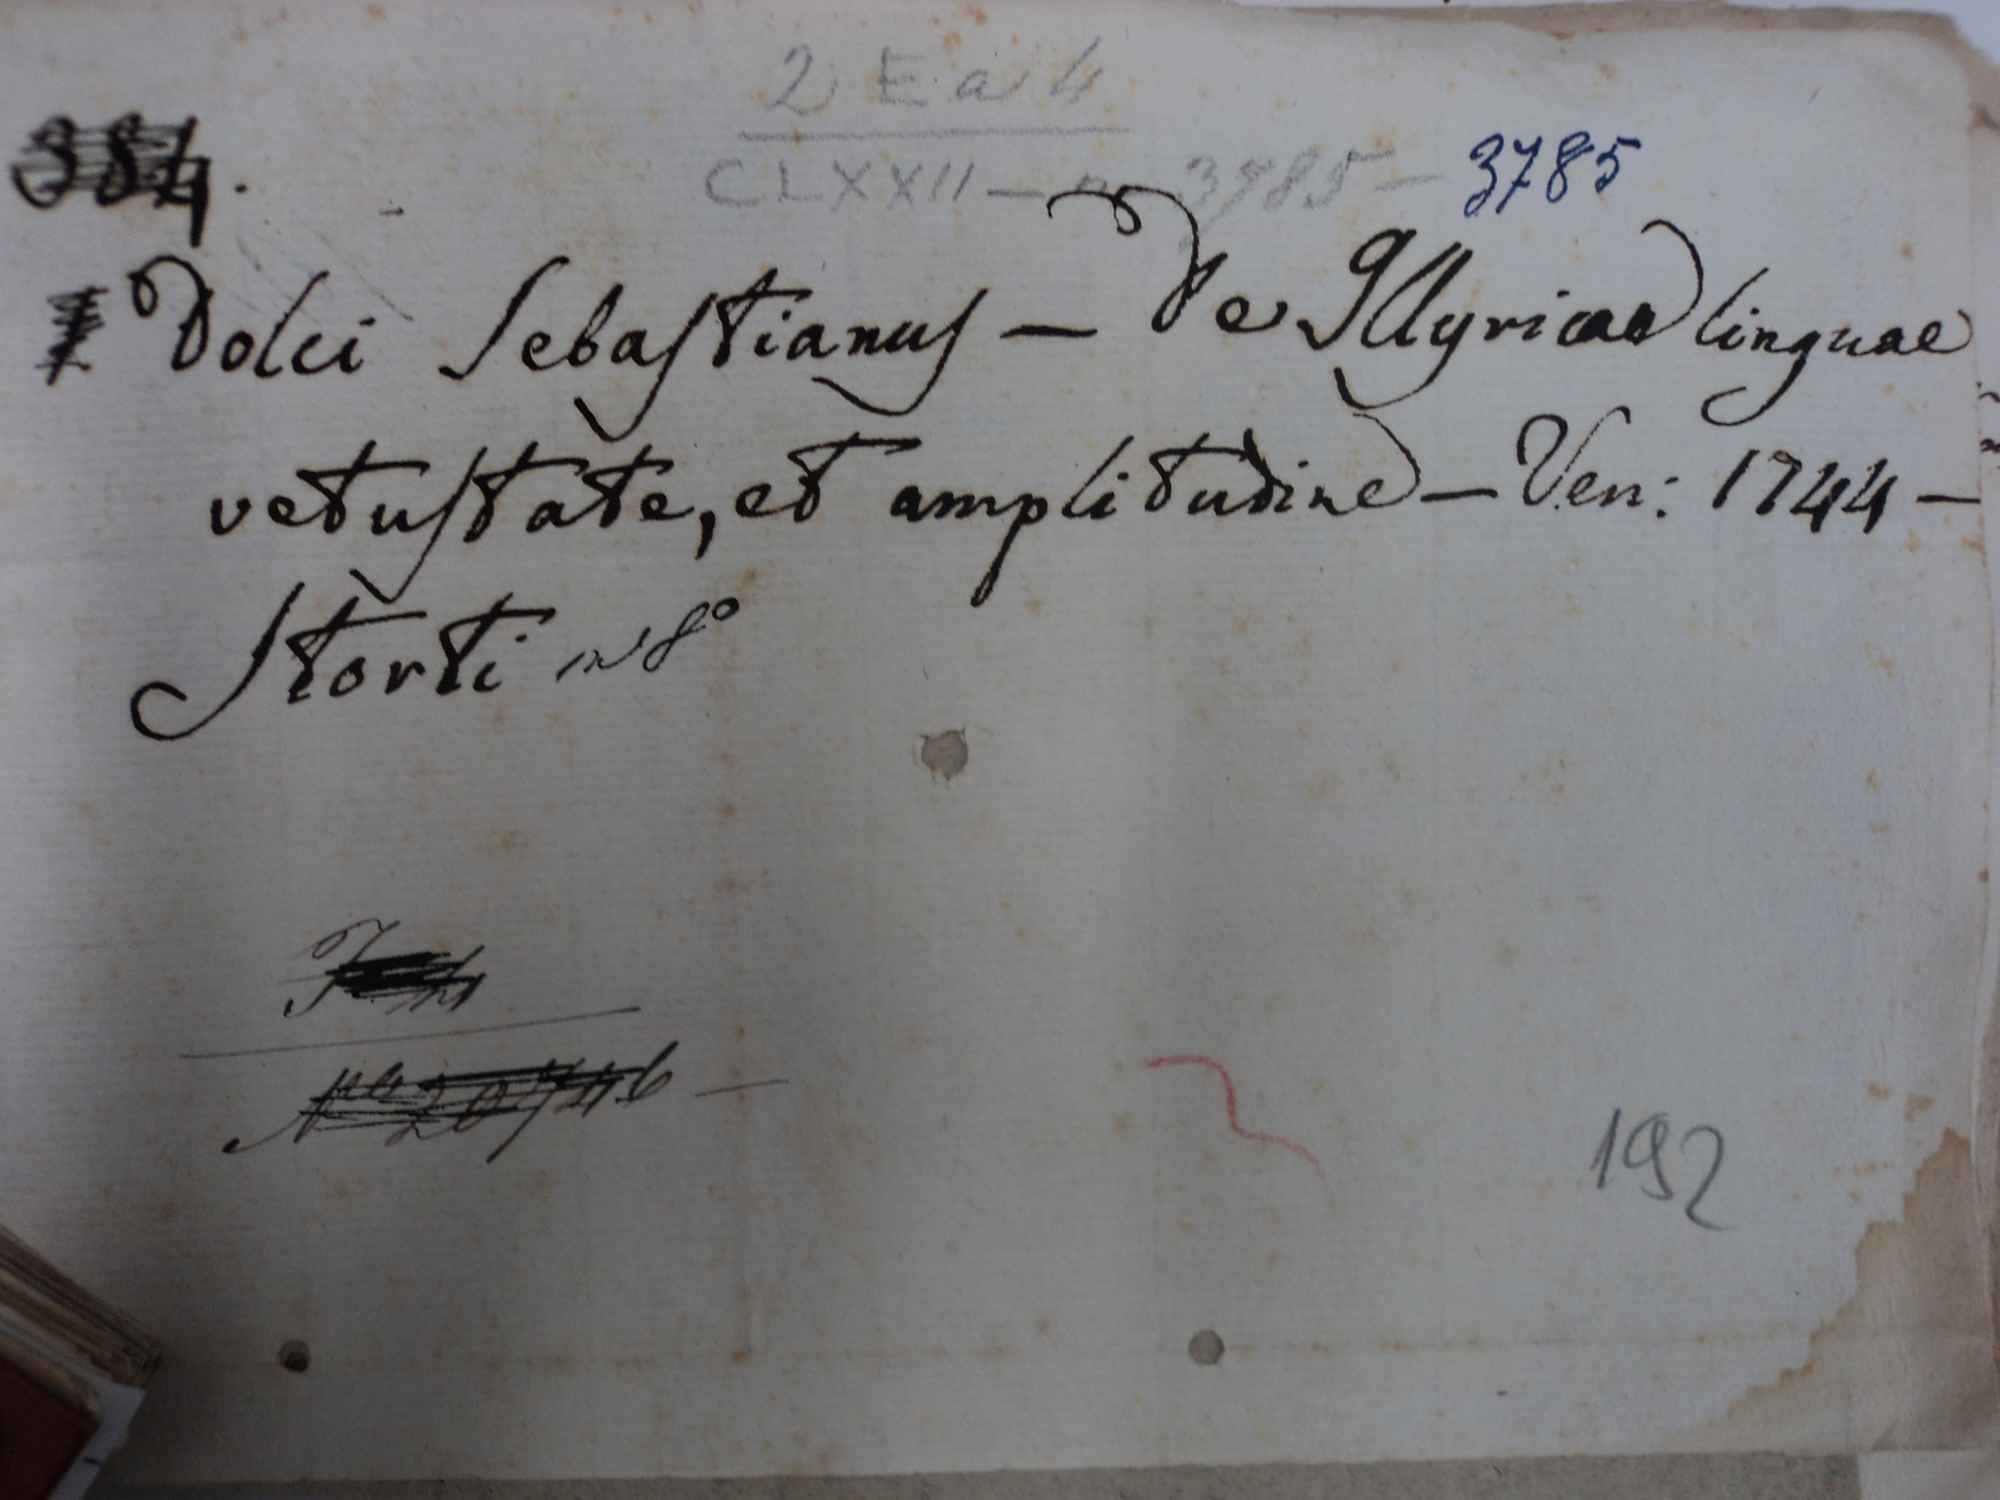 2 E a 4
CLXXII — n 3785 — 3785
384.
Dolci Sebastianus — De Illyricae linguae
vetustate, et amplitudine — Ven: 1744 —
Storti in 8°
192